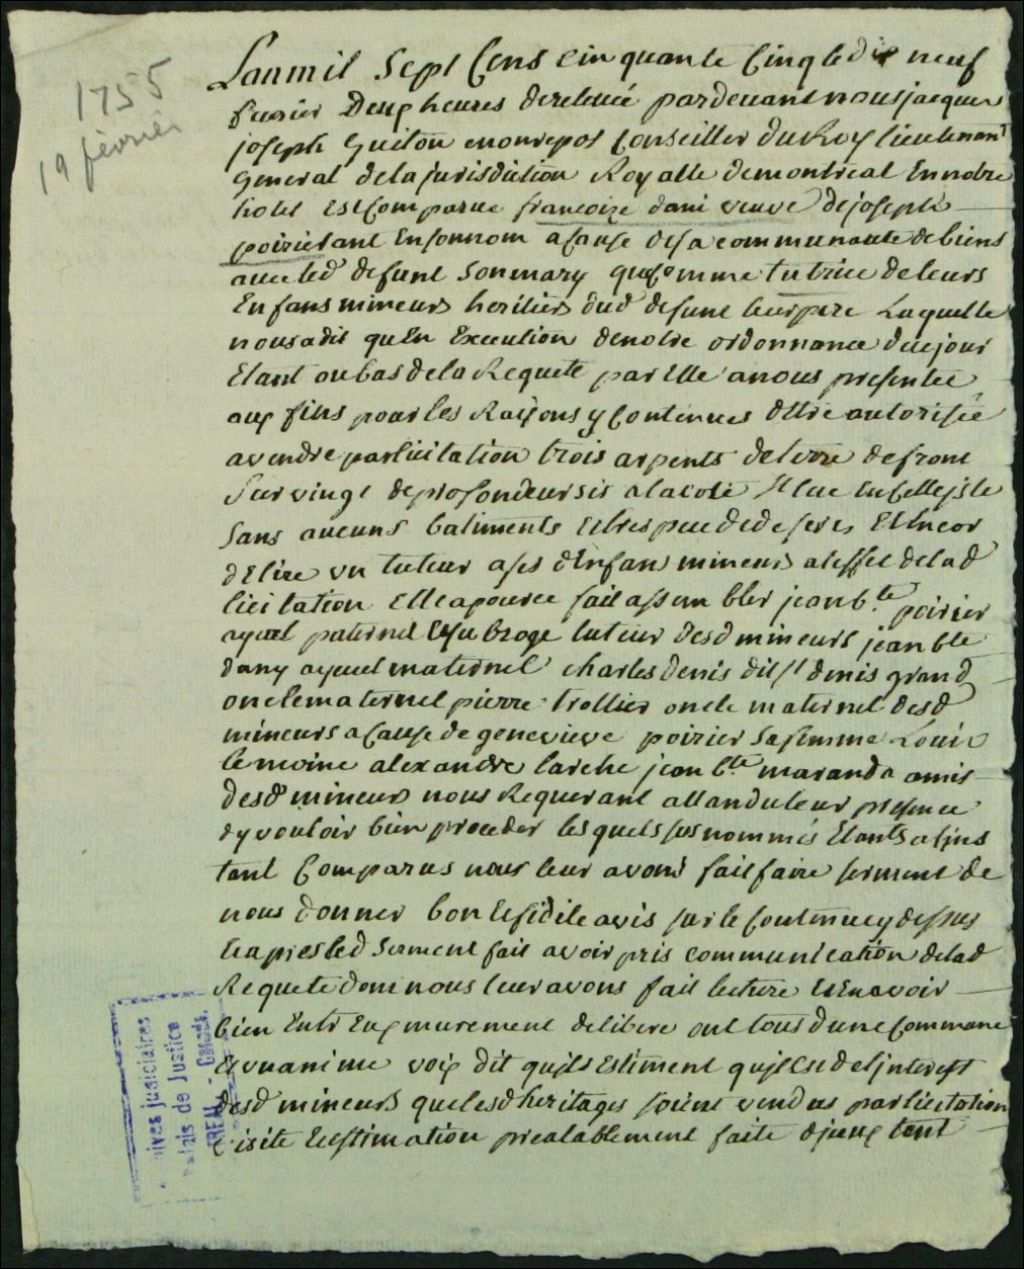 1755
19 février
Lanmil Sept Cens cinquante Cinq le dix neuf
fevrier Deux heures de relevée pardevant nous jacques
joseph Guiton monrepos Conseiller du Roy lieutenant
General de la jurisdiction Royalle de montreal En notre
hotel Est Comparue francoize dani veuve de joseph
poirier tant En son nom a cause de sa communauté de biens
avec led defunt Son mary que comme tutrice de leurs
Enfans mineurs heritiers dud defunt leur pere Laquelle
nous a dit qu'En Execution de notre ordonnance de ce jour
Etant au bas de la Requete par Elle a nous presentée
aux fins pour les Raisons y Contenues d'Etre autorisée
a vendre par licitation trois arpents de terre de front
Sur vingt de profondeur sis a la coste St luc En cette isle
Sans aucuns batiments et tres peu de deserts Et Encor
d'Elire un tuteur a ses d Enfans mineurs a l'effet de lad
licitation Elle a pour ce fait assembler jean bte poirier
ayeul paternel Et subrogé tuteur desd mineurs jean bte
dany ayeul maternel charles denis dit st denis grand
oncle maternel pierre trottier oncle maternel desd
mineurs a Cause de genevieve poirier Sa femme Louis
le moine alexandre larche jean bte maranda amis
desd mineurs nous Requerant attandu leur presence
d y vouloir bien proceder lesquels susnommés Etants a l'ins
tant Comparus nous leur avons fait faire serment de
nous donner bon Et fidele avis sur le Contenu cy dessus
Et apres led Serment fait avoir pris communication de lad
Requete dont nous leur avons fait lecture Et En avoir
bien Entr Eux murement delibere ont tous d'une Commune
Et unanime voix dit qu'ils Estiment qu'il Est de l'interest
desd mineurs que lesd heritages soient vendus par licitation
visite Et Estimation prealablement faite d'iceux tant
Archives judiciaires
Palais de Justice